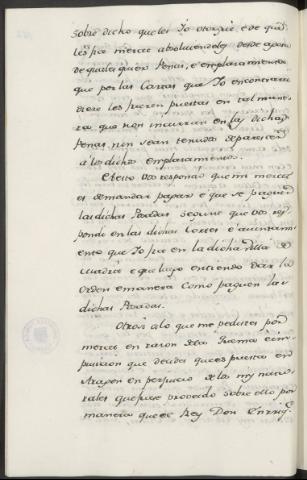 sobre dicho que les Io otorgué, e de que
les fice merced absolviendoles desde agora
de qualesquier Penas, e emplazamientos
que por las Cartas que Io en contrario
diere les fueren puestas en tal mane
ra que non incurran en las dichas
Penas, nin sean tenudos de parescer
a los dichos emplazamientos.
A esto vos respondo que mi merced
es de mandar pagar e que se paguen
las dichas Posadas segunt que vos res
pondi en las dichas Cortes e aiuntami
ento que Io fice en la dicha Villa de
Madrid e que luego entiendo dar la
orden e manera como paguen las
dichas Posadas.
Otrosi a lo que me pedistes por
merced en razon de la Quema e im
pusicion que decides que es puesta en
Aragon en perjuicio de los mis natu
rales que fuese proveido sobre ello por
manera que el Rey Don Enrriq.